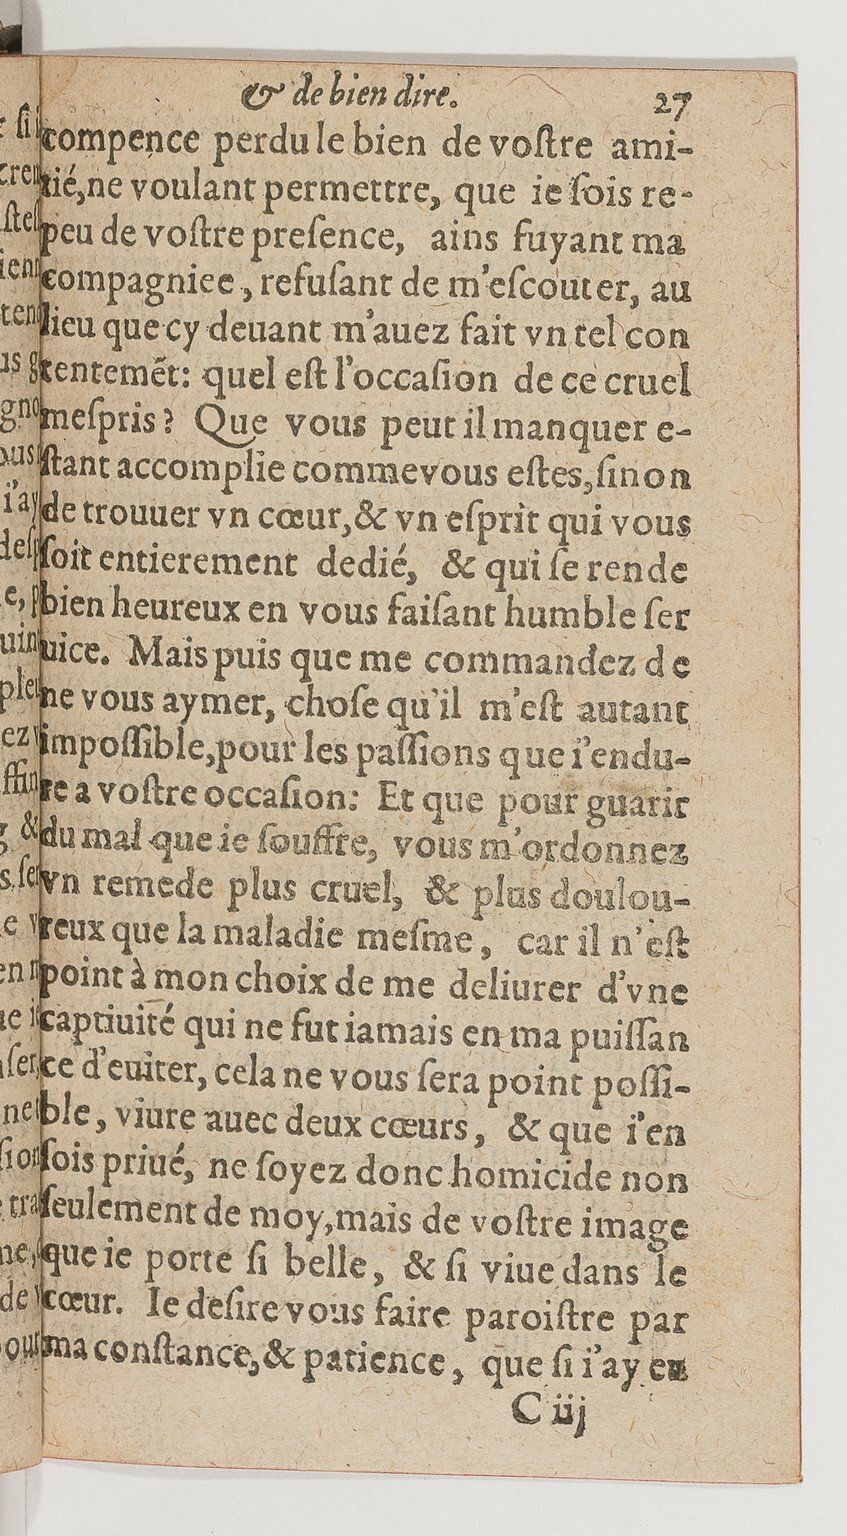 & de bien dire. 27
compence perdu le bien de voſtre ami-
tié, ne voulant permettre, que ie ſois re-
peu de voſtre preſence, ains fuyant ma
compagniee, refuſant de m'eſcouter, au
lieu que cy deuant m'auez fait vn tel con
tentemẽt: quel eſt l'occaſion de ce cruel
meſpris? Que vous peut il manquer e-
ſtant accomplie comme vous eſtes, ſinon
de trouuer vn cœur, & vn eſprit qui vous
ſoit entierement dedié, & qui ſe rende
bien heureux en vous faiſant humble ſer
uice. Mais puis que me commandez de
ne vous aymer, choſe qu'il m'eſt autant
impoſſible, pour les paſſions que i'endu-
re a voſtre occaſion: Et que pour guarir
du mal que ie ſouffre, vous m'ordonnez
vn remede plus cruel, & plus doulou-
reux que la maladie meſme, car il n'eſt
point à mon choix de me deliurer d'vne
captiuité qui ne fut iamais en ma puiſſan
ce d'euiter, cela ne vous ſera point poſſi-
ble, viure auec deux cœurs, & que i'en
ſois priué, ne ſoyez donc homicide non
ſeulement de moy, mais de voſtre image
que ie porte ſi belle, & ſi viue dans le
cœur. Ie deſire vous faire paroiſtre par
ma conſtance, & patience, que ſi i'ay eu
C iij